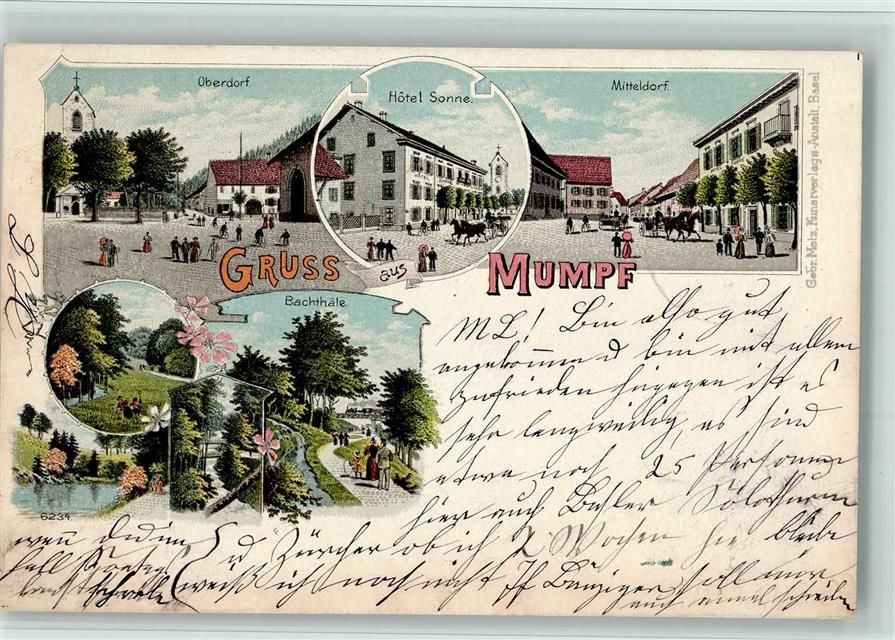 Oberdorf.
Hôtel Sonne.
Mitteldorf.
GRUSS
aus
MUMPF
Bachthäle.
6234
Gebr. Metz, Kunstverlags-Anstalt, Basel
M L! Bin also gut
angekommen d bin mit allem
zufrieden hingegen ist es
sehr langweilig, es sind
etwa noch 25 Personen
hier auch Basler Solothurn
u Zürcher ob ich 2 Wochen hie bleibe
weiß ich noch nicht Jf Bänziger soll mir
auch einmal schreiben